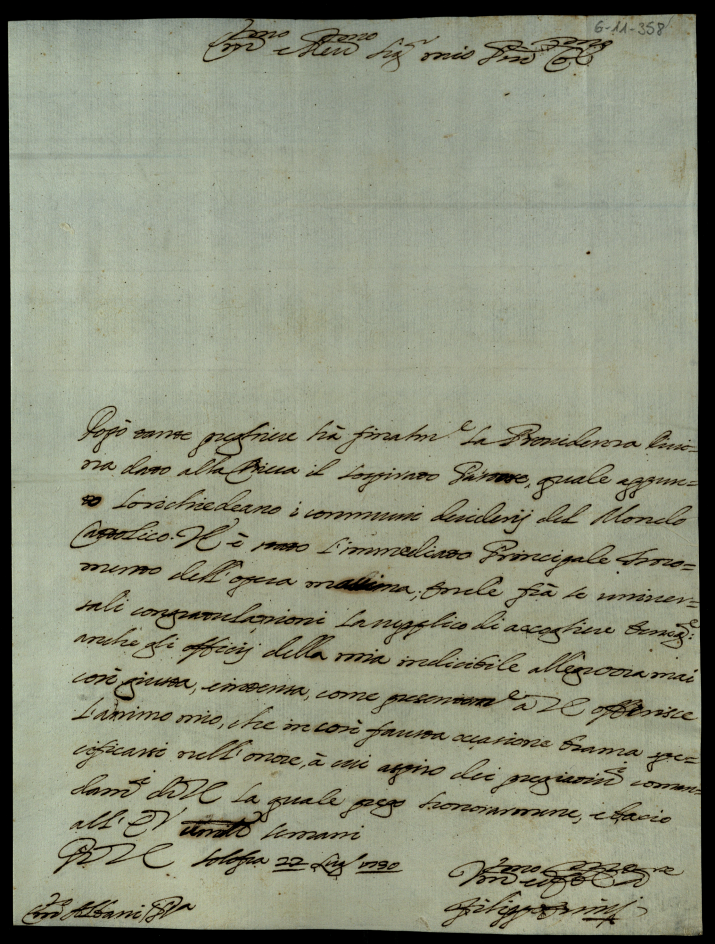 6-11-358
Em.mo e Rev.mo Sig.r mio P.ron Col.mo
Dopò tante preghiere hà finalm.e la Providenza Divi=
na dato alla Chiesa il sospirato Pastore, quale appun=
to lo richiedeano i communi desiderij del Mondo
Cattolico. VE è stato l'immediato Principale Stro=
mento dell'opera massima; Onde frà le univer=
sali congratulazioni la supplico di accogliere benig.e
anche gli officij della mia indicibile allegrezza mai
così giusta, e intensa, come presentem.e a VE offerisce
l'animo mio, che in così fausta occasione brama spe=
cificarsi nell'onore, à cui aspiro dei pregiatis.mi coman=
dam.ti di VE la quale prego honorarmene, e bacio
all'EV umilm.e le mani
Di VE Solofra 22 Lug.o 1730
Em.o Albani P.a
Filippo Orsini